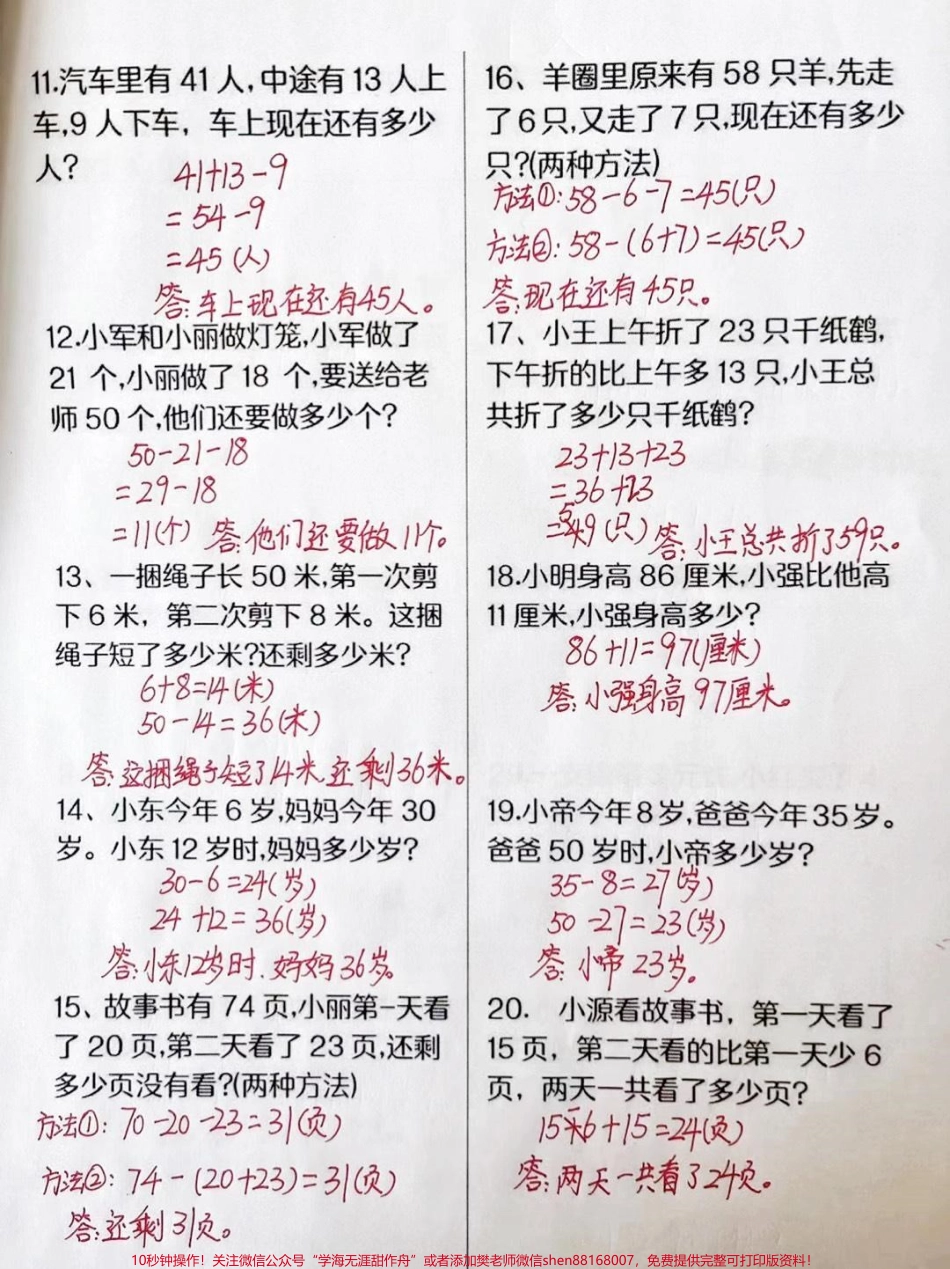 11.汽车里有 41 人,中途有 13 人上
车,9 人下车，车上现在还有多少
人?
41+13-9
=54-9
=45(人)
答:车上现在还有45人。
12.小军和小丽做灯笼,小军做了
21 个,小丽做了 18 个,要送给老
师 50 个,他们还要做多少个?
50-21-18
=29-18
=11(个) 答:他们还要做11个。
13、一捆绳子长 50 米,第一次剪
下 6 米，第二次剪下 8 米。这捆
绳子短了多少米?还剩多少米?
6+8=14(米)
50-14=36(米)
答:这捆绳子短了14米,还剩36米。
14、小东今年 6 岁,妈妈今年 30
岁。小东 12 岁时,妈妈多少岁?
30-6=24(岁)
24+12=36(岁)
答:小东12岁时,妈妈36岁。
15、故事书有 74 页,小丽第一天看
了 20 页,第二天看了 23 页,还剩
多少页没有看?(两种方法)
方法①: 70-20-23=31(页)
方法②: 74-(20+23)=31(页)
答:还剩31页。
16、羊圈里原来有 58 只羊,先走
了 6 只,又走了 7 只,现在还有多少
只?(两种方法)
方法①:58-6-7=45(只)
方法②:58-(6+7)=45(只)
答:现在还有45只。
17、小王上午折了 23 只千纸鹤,
下午折的比上午多 13 只,小王总
共折了多少只千纸鹤?
23+13+23
=36+23
=59(只) 答:小王总共折了59只。
18.小明身高 86 厘米,小强比他高
11 厘米,小强身高多少?
86+11=97(厘米)
答:小强身高97厘米。
19.小帝今年 8 岁,爸爸今年 35 岁。
爸爸 50 岁时,小帝多少岁?
35-8=27(岁)
50-27=23(岁)
答:小帝23岁。
20. 小源看故事书，第一天看了
15 页，第二天看的比第一天少 6
页，两天一共看了多少页?
15-6+15=24(页)
答:两天一共看了24页。
10秒钟操作！关注微信公众号“学海无涯甜作舟”或者添加樊老师微信shen88168007，免费提供完整可打印版资料！